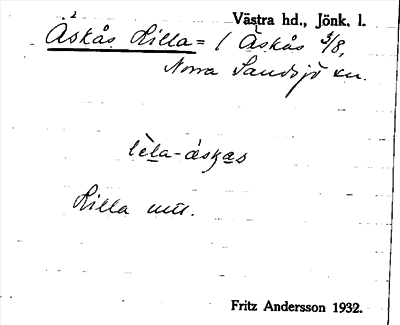 Västra hd., Jönk. l.
Äskås Lilla = 1 Äskås 3/8,
Norra Sandsjö sn.
lèla-àskas
Lilla mtl.
Fritz Andersson 1932.